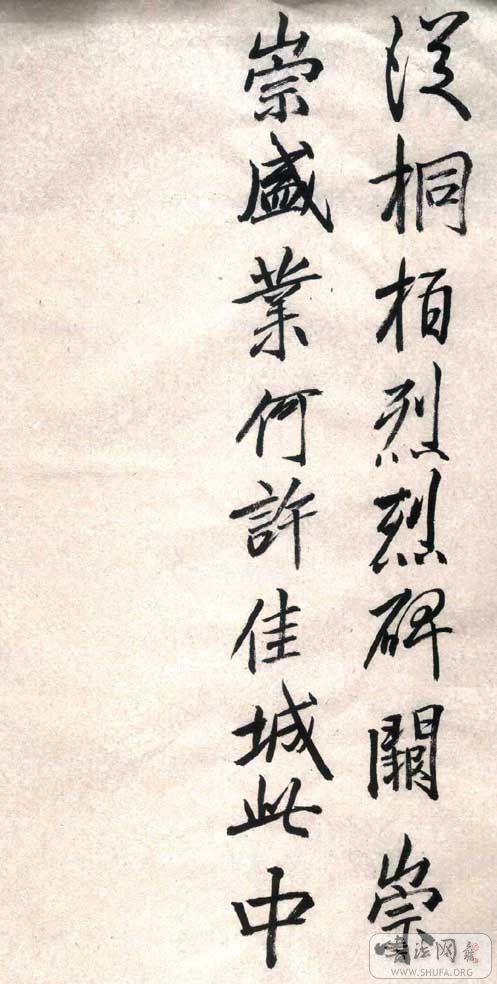 从桐栢烈烈碑闕崇
崇盛業何許佳城此中
书法网
WWW.SHUFA.ORG